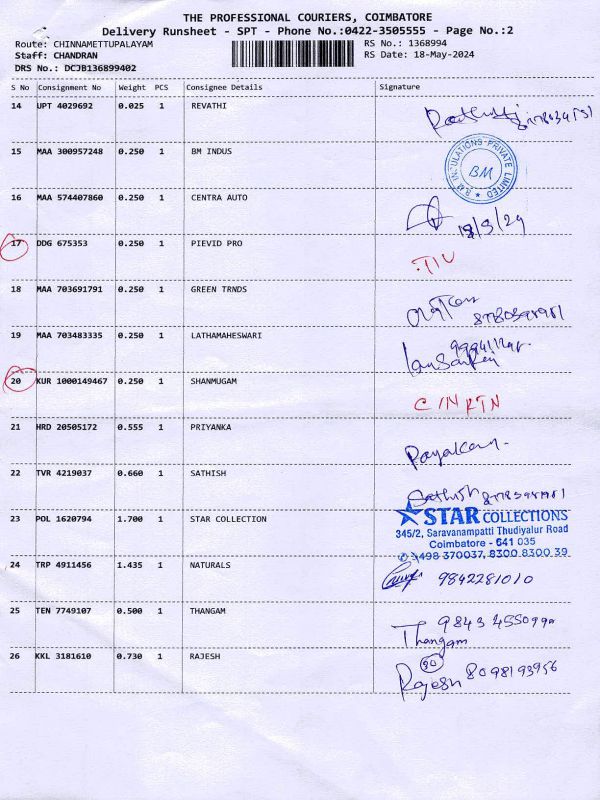 THE PROFESSIONAL COURIERS, COIMBATORE
Delivery Runsheet - SPT - Phone No.:0422-3505555 - Page No.:2
Route: CHINNAMETTUPALAYAM RS No.: 1368994
Staff: CHANDRAN RS Date: 18-May-2024
DRS No.: DCJB136899402
S No Consignment No Weight PCS Consignee Details Signature
14 UPT 4029692 0.025 1 REVATHI
15 MAA 300957248 0.250 1 BM INDUS
B.M INSULATIONS PRIVATE LIMITED
BM
16 MAA 574407860 0.250 1 CENTRA AUTO
18/5/24
17 DDG 675353 0.250 1 PIEVID PRO
18 MAA 703691791 0.250 1 GREEN TRNDS
19 MAA 703483335 0.250 1 LATHAMAHESWARI
20 KUR 1000149467 0.250 1 SHANMUGAM
C/N RTN
21 HRD 20505172 0.555 1 PRIYANKA
22 TVR 4219037 0.660 1 SATHISH
Sathish
23 POL 1620794 1.700 1 STAR COLLECTION
STAR COLLECTIONS
345/2, Saravanampatti Thudiyalur Road
Coimbatore - 641 035
498 370037, 8300 8300 39
24 TRP 4911456 1.435 1 NATURALS
9842281010
25 TEN 7749107 0.500 1 THANGAM
Thangam
26 KKL 3181610 0.730 1 RAJESH
Rajesh 8098193956